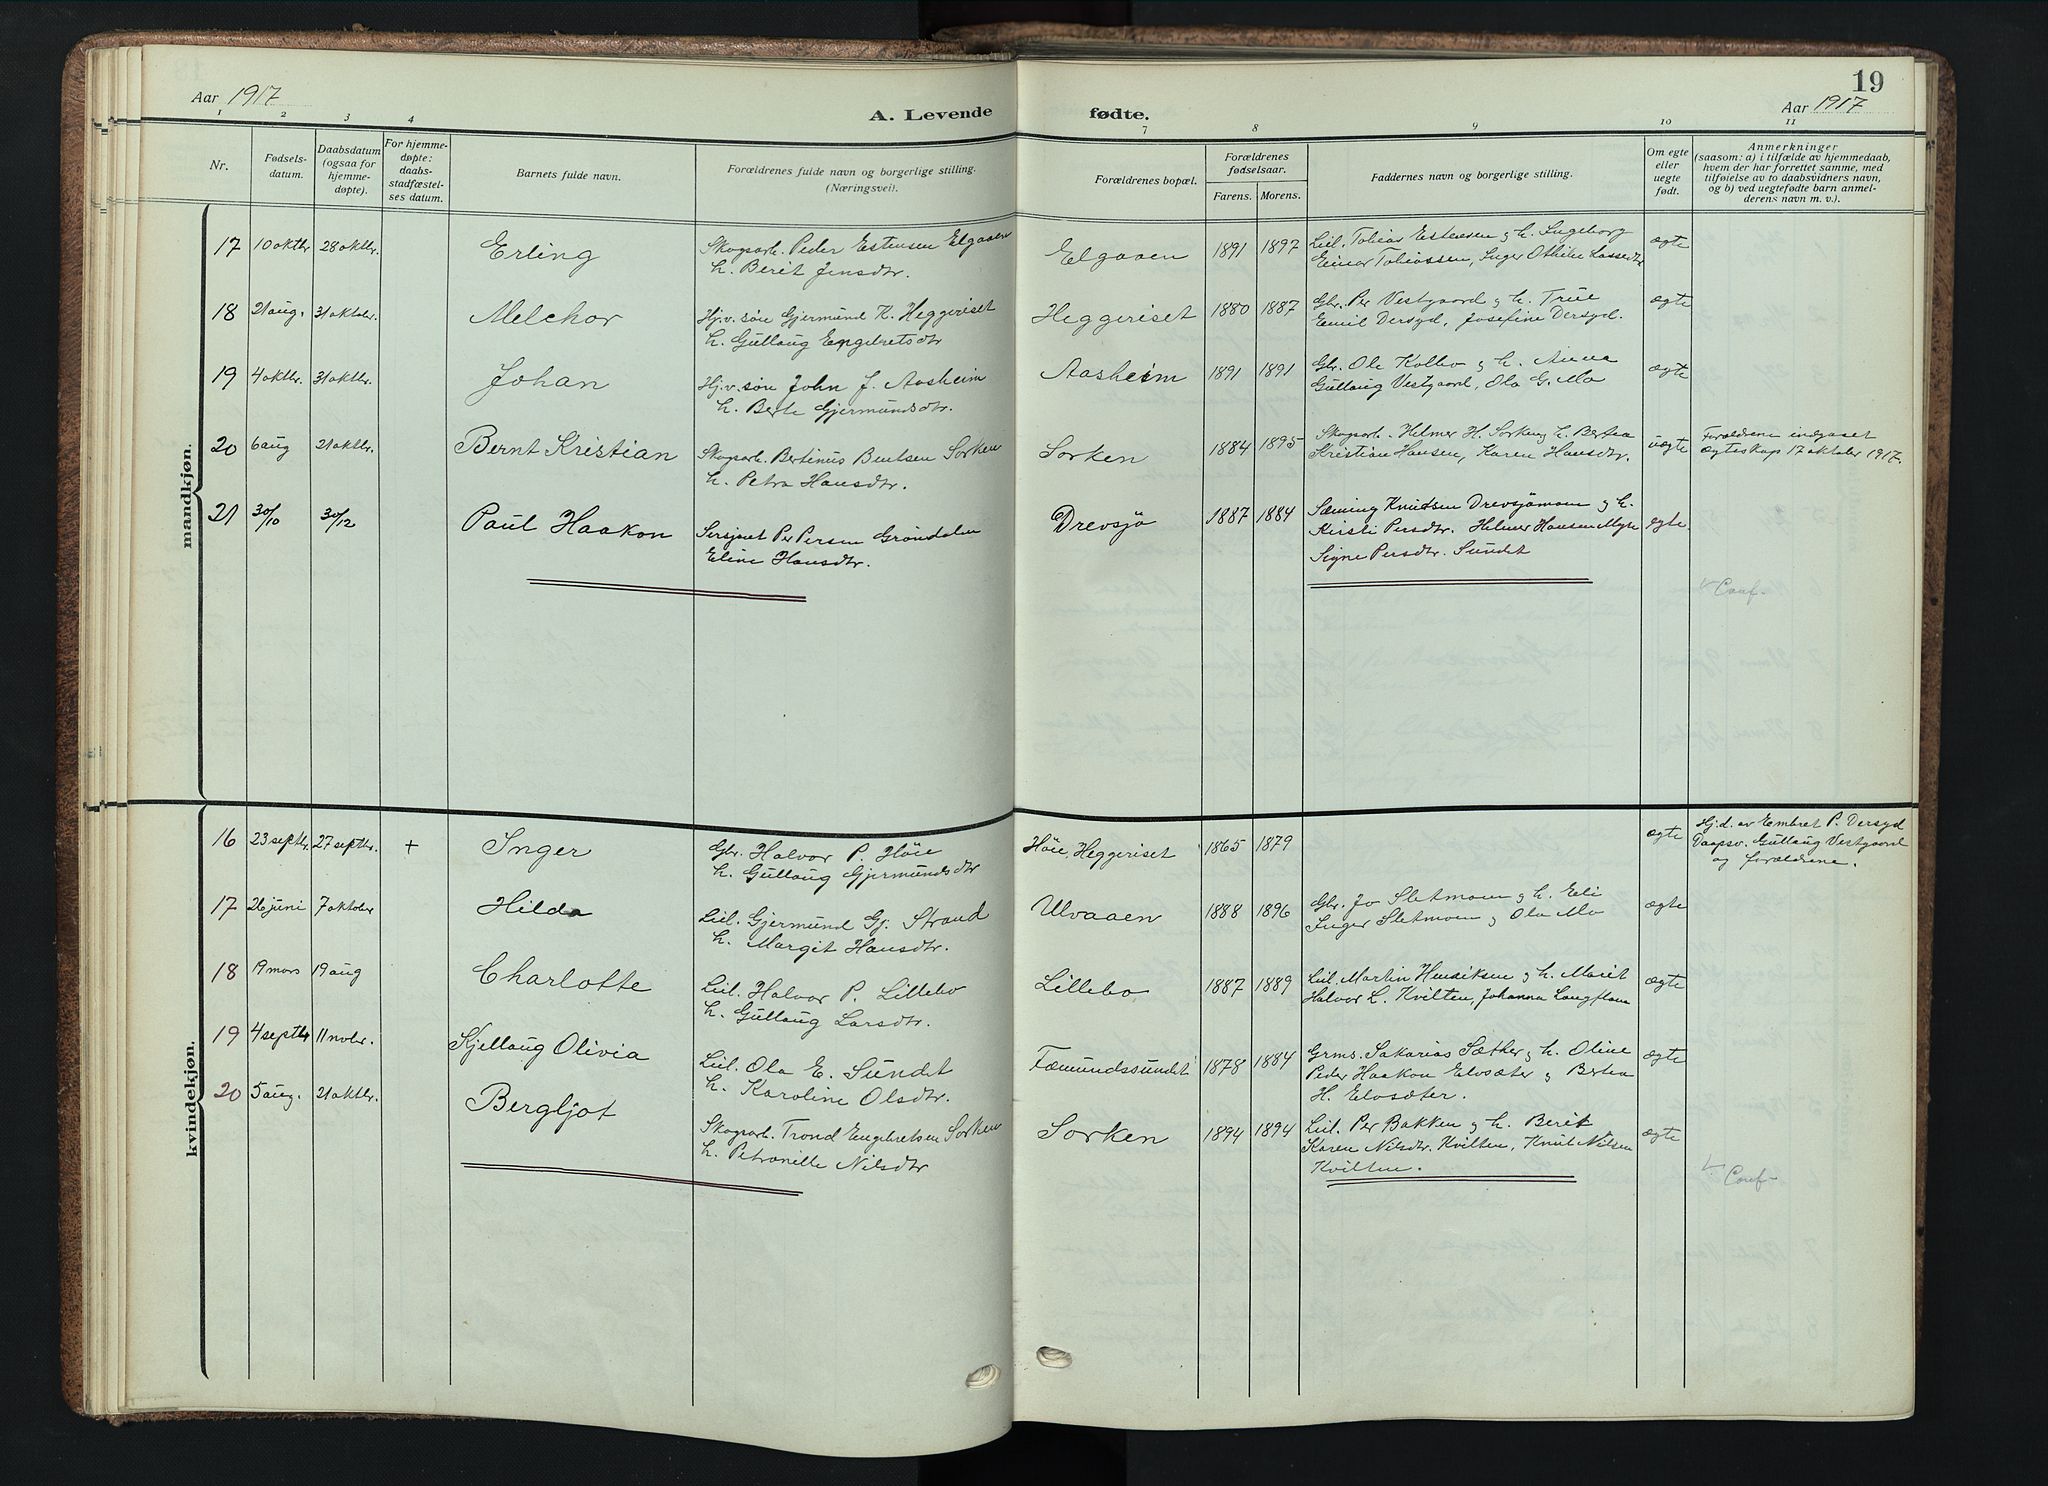 Aar 1917
A. Levende
fødte.
19
Aar 1917
1 2 3 4 7 8 9 10 11
Nr.
Fødsels-
datum.
Daabsdatum
(ogsaa for
hjemme-
døpte).
For hjemme-
døpte:
daabs-
stadfæstel-
ses datum.
Barnets fulde navn.
Forældrenes fulde navn og borgerlige stilling.
(Næringsvei).
Forældrenes bopæl.
Forældrenes
fødselsaar.
Farens. Morens.
Faddernes navn og borgerlige stilling.
Om egte
eller
uegte
født.
Anmerkninger
(saasom: a) i tilfælde av hjemmedaab,
hvem der har forrettet samme, med
tilføielse av to daabsvidners navn,
og b) ved uegtefødte barn anmel-
derens navn m. v.).
mandkjøn.
17 10 oktbr. 28 oktbr. Erling
Skogsarb. Peder Estensen Elgaaen
h. Berit Jensdtr.
Elgaaen 1891 1897
Leil. Tobias Estensen g h. Ingeborg
Einar Tobiassen, Inger Othilie Lassedtr
ægte
18 21 aug. 31 oktober. Melchor
Hj.v. søn Gjermund K. Heggeriset
h. Gullaug Engebretsdtr
Heggeriset 1880 1887
Gbr. Per Vestgaard g h. True
Emil Dersyd, Josefine Dersyd.
ægte
19 4 oktbr. 31 oktbr. Johan
Hj.v. søn John J. Aasheim
h. Berte Gjermundsdtr.
Aasheim 1891 1891
Gbr. Ole Kolbo g h. Anna
Gullaug Vestgaard, Ola G. Mo
ægte
20 6 aug 21 oktbr. Bernt Kristian
Skogsarb. Bertinus Bentsen Sorken
h. Petra Hansdtr.
Sorken 1884 1895
Skogsarb. Helmer H. Sorken g h. Bertea
Kristian Hansen, Karen Hansdtr.
uægte
Forældrene indgaaet
ægteskap 17 oktober 1917.
21 30/10 30/12 Paul Haakon
Sersjant Per Persen Grøndalen
Eline Hansdtr.
Drevsjø 1887 1884
Sæming Knudsen Drevsjømoen g h.
Kirsti Persdtr. Helmer Hansen Myre
Signe Persdtr. Sundet
egte
Conf.
kvindekjøn.
16 23 septbr. 27 septbr. + Inger
Gbr. Halvor P. Høie
h. Gullaug Gjermundsdtr
Høie, Heggeriset 1865 1879
ægte
Hj.d. av Embret P. Dersyd
Daapsv. Gullaug Vestgaard
og forældrene.
17 26 juni 7 oktober Hilda
Leil. Gjermund Gj. Strand
h. Margit Hansdtr.
Ulvaaen 1888 1896
Gbr. Jo Sletmoen g h. Eli
Inger Sletmoen g Ola Mo
ægte
18 19 mars 19 aug Charlotte
Leil. Halvor P. Lillebo
h. Gullaug Larsdtr.
Lillebo 1887 1889
Leil. Martin Henriksen g h. Marit
Halvor L. Kvilten, Johanna Langflaen
ægte
19 4 septbr 11 novbr. Kjellaug Olivia
Leil. Ola E. Sundet
h. Karoline Olsdtr.
Fæmundssundet 1878 1884
Grms. Sakarias Sæther g h. Oline
Peder Haakon Elvsæter g Bertea
H. Elvsæter.
ægte
20 5 aug. 21 oktbr. Bergljot
Skogsarb. Trond Engebretsen Sorken
h. Petronille Nilsdtr
Sorken 1894 1894
Leil. Per Bakken g h. Berit
Karen Nilsdtr. Kvilten, Knut Nilsen
Kvilten.
ægte
Conf.